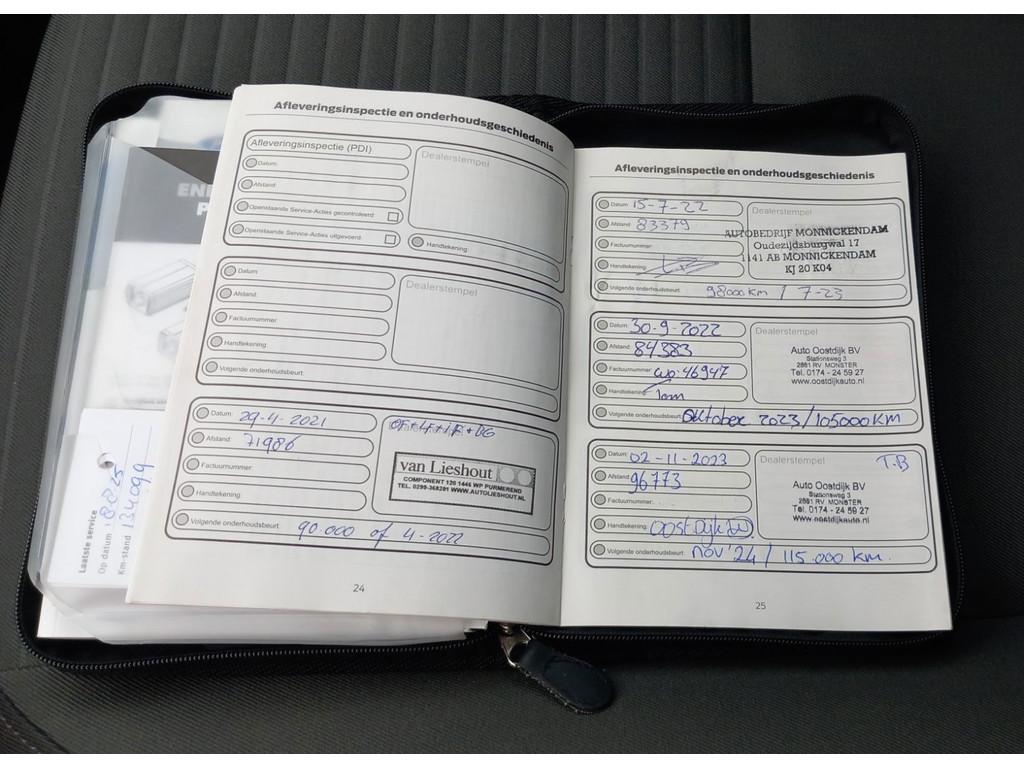 EN
P
Laatste service
Op datum : 8-8-25
Km-stand 134099
Afleveringsinspectie en onderhoudsgeschiedenis
Afleveringsinspectie (PDI)
Datum:
Afstand:
Openstaande Service-Acties gecontroleerd:
Openstaande Service-Acties uitgevoerd:
Dealerstempel
Handtekening:
Datum:
Afstand:
Factuurnummer:
Handtekening:
Volgende onderhoudsbeurt:
Dealerstempel
Datum: 29-4-2021
Afstand: 71986
Factuurnummer:
Handtekening:
Volgende onderhoudsbeurt: 90.000 of 4-2022
van Lieshout
COMPONENT 120 1446 WP PURMEREND
TEL. 0299-368201 WWW.AUTOLIESHOUT.NL
24
Afleveringsinspectie en onderhoudsgeschiedenis
Datum: 15-7-22
Afstand: 83379
Factuurnummer:
Handtekening:
Volgende onderhoudsbeurt: 98000km / 7-23
Dealerstempel
AUTOBEDRIJF MONNICKENDAM
Oudezijdsburgwal 17
1141 AB MONNICKENDAM
KJ 20 K04
Datum: 30-9-2022
Afstand: 84383
Factuurnummer: wo.46947
Handtekening:
Volgende onderhoudsbeurt: Oktober 2023/105000KM
Dealerstempel
Auto Oostdijk BV
Stationsweg 3
2681 RV MONSTER
Tel. 0174 - 24 59 27
www.oostdijkauto.nl
Datum: 02-11-2023
Afstand: 96773
Factuurnummer:
Handtekening: Oostdijk BV
Volgende onderhoudsbeurt: nov '24 / 115.000 km.
Dealerstempel
T.B
Auto Oostdijk BV
Stationsweg 3
2681 RV MONSTER
Tel. 0174 - 24 59 27
www.oostdijkauto.nl
25